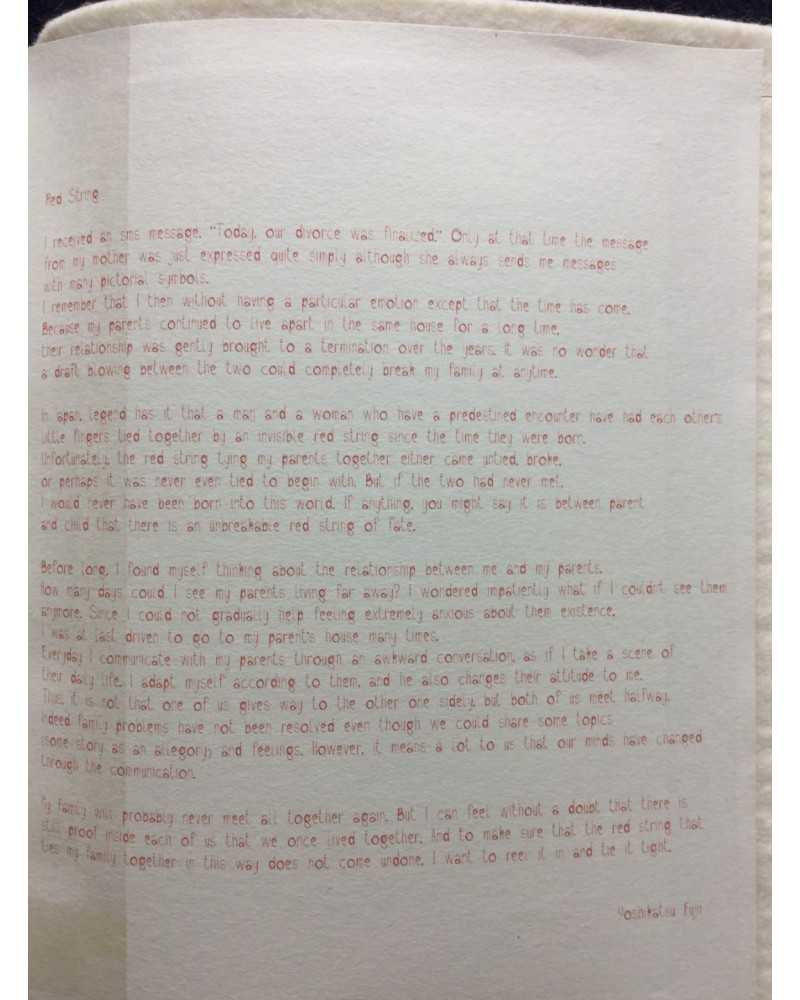 Red String
I received an sms message, "Today, our divorce was finalized." Only at that time the message
from my mother was just expressed quite simply although she always sends me messages
with many pictorial symbols.
I remember that I then without having a particular emotion except that the time has come.
Because my parents continued to live apart in the same house for a long time,
their relationship was gently brought to a termination over the years. It was no wonder that
a draft blowing between the two could completely break my family at anytime.
In apan, legend has it that a man and a woman who have a predestined encounter have had each other's
little fingers tied together by an invisible red string since the time they were born.
Unfortunately, the red string tying my parents together either came untied, broke,
or perhaps it was never even tied to begin with. But if the two had never met,
I would never have been born into this world. If anything, you might say it is between parent
and child that there is an unbreakable red string of fate.
Before long, I found myself thinking about the relationship between me and my parents.
How many days could I see my parents living far away? I wondered impatiently what if I couldn't see them
anymore. Since I could not gradually help feeling extremely anxious about them existence,
I was at last driven to go to my parent's house many times.
Everyday I communicate with my parents through an awkward conversation, as if I take a scene of
their daily life. I adapt myself according to them, and he also changes their attitude to me.
Thus, it is not that one of us gives way to the other one sidely, but both of us meet halfway.
Indeed family problems have not been resolved even though we could share some topics
(some story as an allegory) and feelings. However, it means a lot to us that our minds have changed
through the communication.
My family will probably never meet all together again. But I can feel without a doubt that there is
still proof inside each of us that we once lived together. And to make sure that the red string that
ties my family together in this way does not come undone, I want to reel it in and tie it tight.
Yoshikatsu Fujii